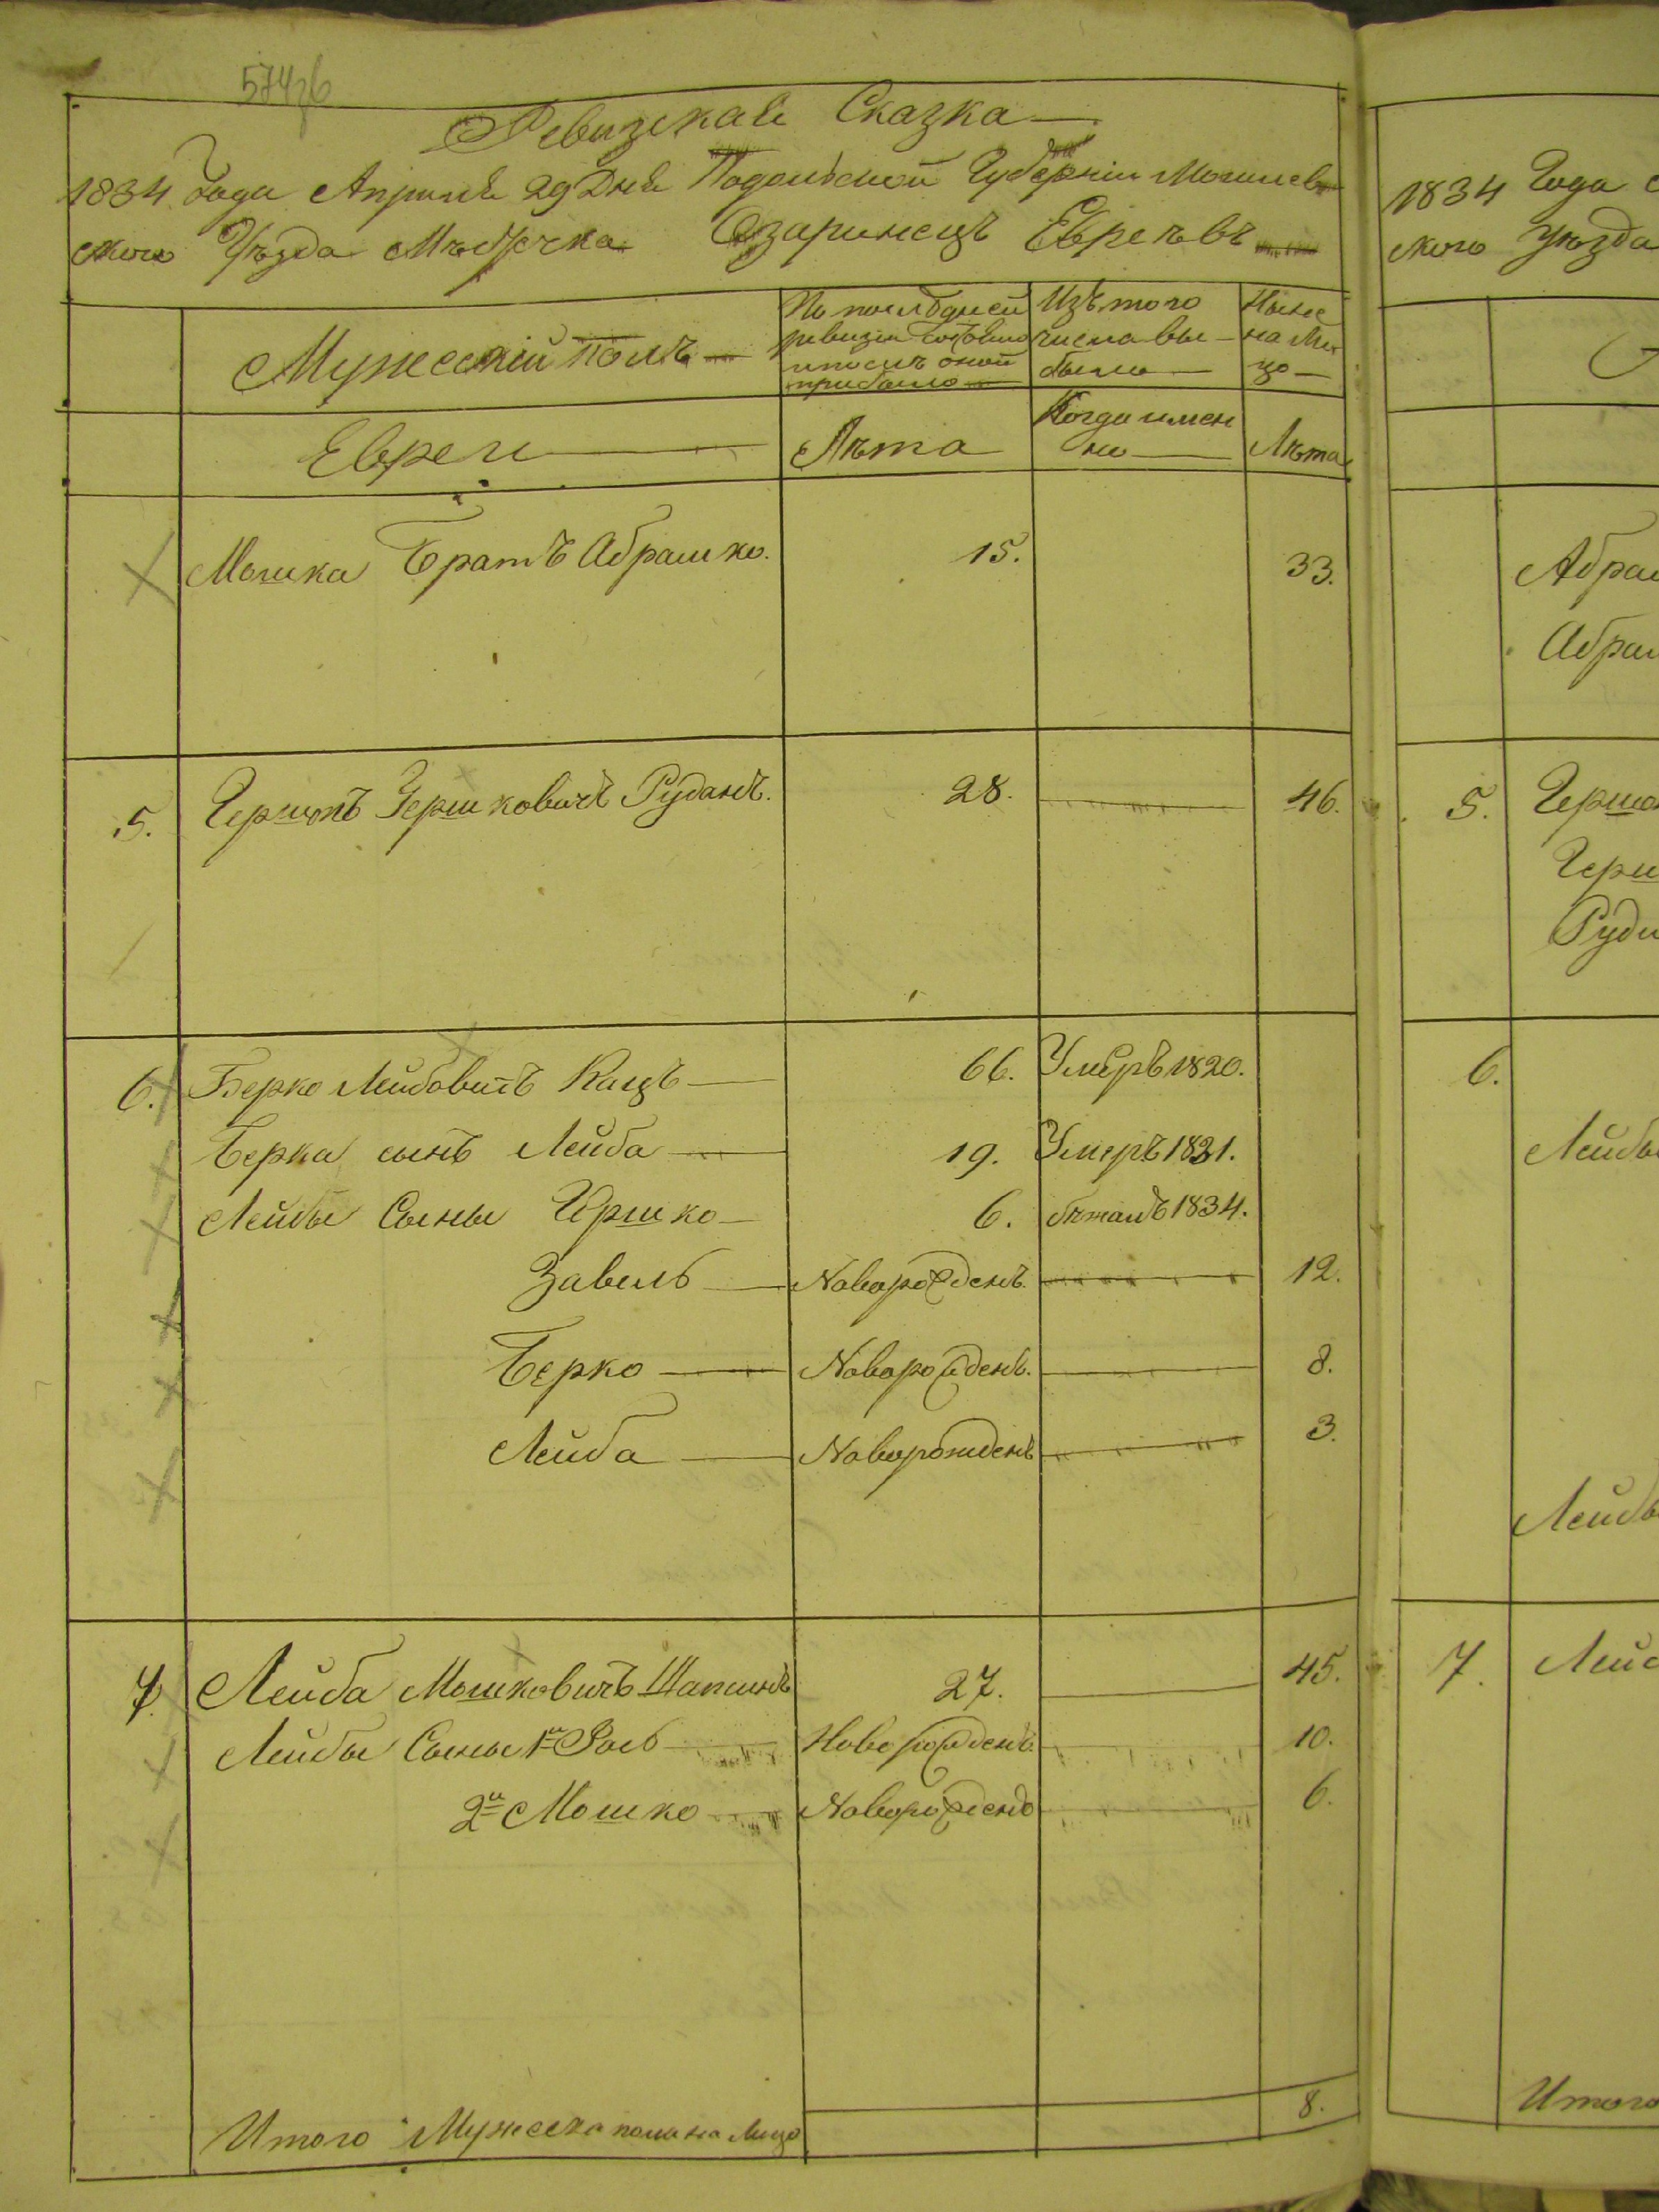 574
Ревизская Сказка
1834 Года Апреля 29 Дня Подольской Губерніи Могилев
ского Уѣзда Мѣстечка Озаринецъ Евреѣвъ
Мужескій полъ
По послѣдней ревизіи состояло и послѣ оной прибыло
Изъ того числа вы-было
Ныне на Ли-цо
Евреи
Лѣта
Когда имен но
Лѣта
Мошка Братъ Абрашко. 15. 33.
5. Гершонъ Гершковичъ Руданъ. 28. 46.
6. Берко Лейбовичъ Кацъ 66. Умеръ 1820.
Берка сынъ Лейба 19. Умеръ 1831.
Лейбы Сыны Гершко 6. бѣжалъ 1834.
Завель Новорожденъ. 12.
Берко Новорожденъ. 8.
Лейба Новорожденъ 3.
7. Лейба Мошковичъ 27. 45.
Лейбы Сыны 1й Новорожденъ. 10.
2й Мошко Новорожденъ 6.
Итого Мужеска пола на Лицо 8.
1834 Года
ского Уѣзда
Абра
Абра
5. Гершо
Герш
Руд
6.
Лейбы
Лейбы
7. Лей
Итого